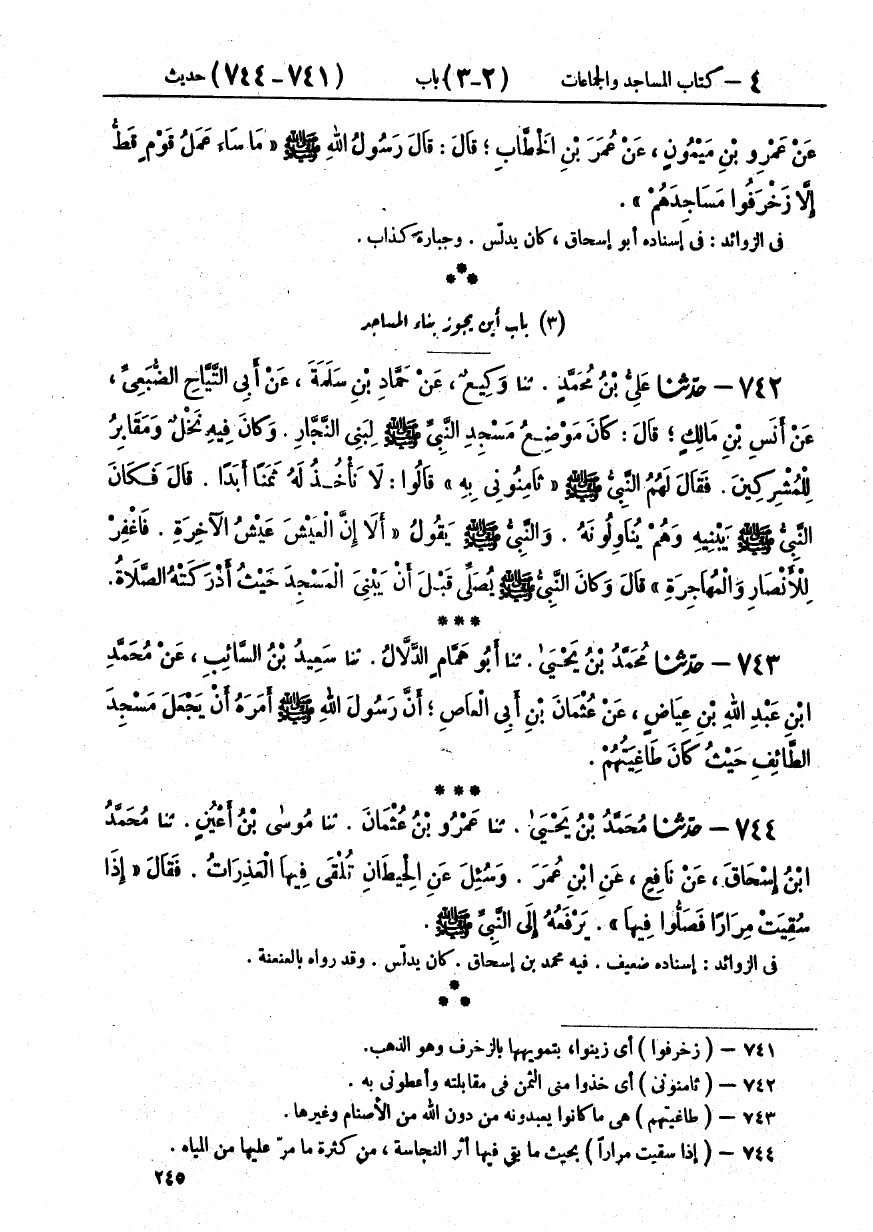 ٤ – كتاب المساجد والجماعات (٢-٣) باب (٧٤١-٧٤٤) حديث
عَنْ عَمْرِو بْنِ مَيْمُونٍ ، عَنْ عُمَرَ بْنِ الْخَطَّابِ ؛ قَالَ : قَالَ رَسُولُ اللهِ ﷺ « مَا سَاءَ عَمَلُ قَوْمٍ قَطُّ
إِلَّا زَخْرَفُوا مَسَاجِدَهُمْ » .
فى الزوائد : فى إسناده أبو إسحاق ، كان يدلّس . وجبارة كذاب .
***
(٣) باب أين يجوز بناء المساجد
٧٤٢ – حدّثنا عَلِىُّ بْنُ مُحَمَّدٍ . ثنا وَكِيعٌ ، عَنْ حَمَّادِ بْنِ سَلَمَةَ ، عَنْ أَبِى التَّيَّاحِ الضُّبَعِىِّ ،
عَنْ أَنَسِ بْنِ مَالِكٍ ؛ قَالَ : كَانَ مَوْضِعُ مَسْجِدِ النَّبِىِّ ﷺ لِبَنِى النَّجَّارِ . وَكَانَ فِيهِ نَخْلٌ وَمَقَابِرُ
لِلْمُشْرِكِينَ . فَقَالَ لَهُمُ النَّبِىُّ ﷺ « ثَامِنُونِى بِهِ » قَالُوا : لَا نَأْخُذُ لَهُ ثَمَنًا أَبَدًا . قَالَ فَكَانَ
النَّبِىُّ ﷺ يَبْنِيهِ وَهُمْ يُنَاوِلُونَهُ . وَالنَّبِىُّ ﷺ يَقُولُ « أَلَا إِنَّ الْعَيْشَ عَيْشُ الْآخِرَةِ . فَاغْفِرْ
لِلْأَنْصَارِ وَالْمُهَاجِرَةِ » قَالَ وَكَانَ النَّبِىُّ ﷺ يُصَلِّى قَبْلَ أَنْ يَبْنِىَ الْمَسْجِدَ حَيْثُ أَدْرَكَتْهُ الصَّلَاةُ.
***
٧٤٣ – حدّثنا مُحَمَّدُ بْنُ يَحْيَىٰ . ثنا أَبُو هَمَّامٍ الدَّلَّالُ . ثنا سَعِيدُ بْنُ السَّائِبِ ، عَنْ مُحَمَّدِ
ابْنِ عَبْدِ اللهِ بْنِ عِيَاضٍ ، عَنْ عُثْمَانَ بْنِ أَبِى الْعَاصِ ؛ أَنَّ رَسُولَ اللهِ ﷺ أَمَرَهُ أَنْ يَجْعَلَ مَسْجِدَ
الطَّائِفِ حَيْثُ كَانَ طَاغِيَتُهُمْ .
***
٧٤٤ – حدّثنا مُحَمَّدُ بْنُ يَحْيَىٰ . ثنا عَمْرُو بْنُ عُثْمَانَ . ثنا مُوسَى بْنُ أَعْيَنَ . ثنا مُحَمَّدُ
ابْنُ إِسْحَاقَ ، عَنْ نَافِعٍ ، عَنِ ابْنِ عُمَرَ . وَسُئِلَ عَنِ الْحِيطَانِ تُلْقَى فِيهَا الْعَذِرَاتُ . فَقَالَ « إِذَا
سُقِيَتْ مِرَارًا فَصَلُّوا فِيهَا » . يَرْفَعُهُ إِلَى النَّبِىِّ ﷺ .
فى الزوائد : إسناده ضعيف . فيه محمد بن إسحاق . كان يدلّس . وقد رواه بالعنعنة .
***
٧٤١ – ( زخرفوا ) أى زينوا، بتمويهها بالزخرف وهو الذهب.
٧٤٢ – ( ثامنونى ) أى خذوا منى الثمن فى مقابلته وأعطونى به .
٧٤٣ – ( طاغيتهم ) هى ما كانوا يعبدونه من دون الله من الأصنام وغيرها .
٧٤٤ – ( إذا سقيت مراراً ) بحيث ما بقى فيها أثر النجاسة ، من كثرة ما مرّ عليها من المياه .
٢٤٥